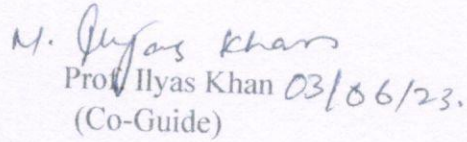 M. Ilyas Khan
Prof Ilyas Khan 03/06/23.
(Co-Guide)